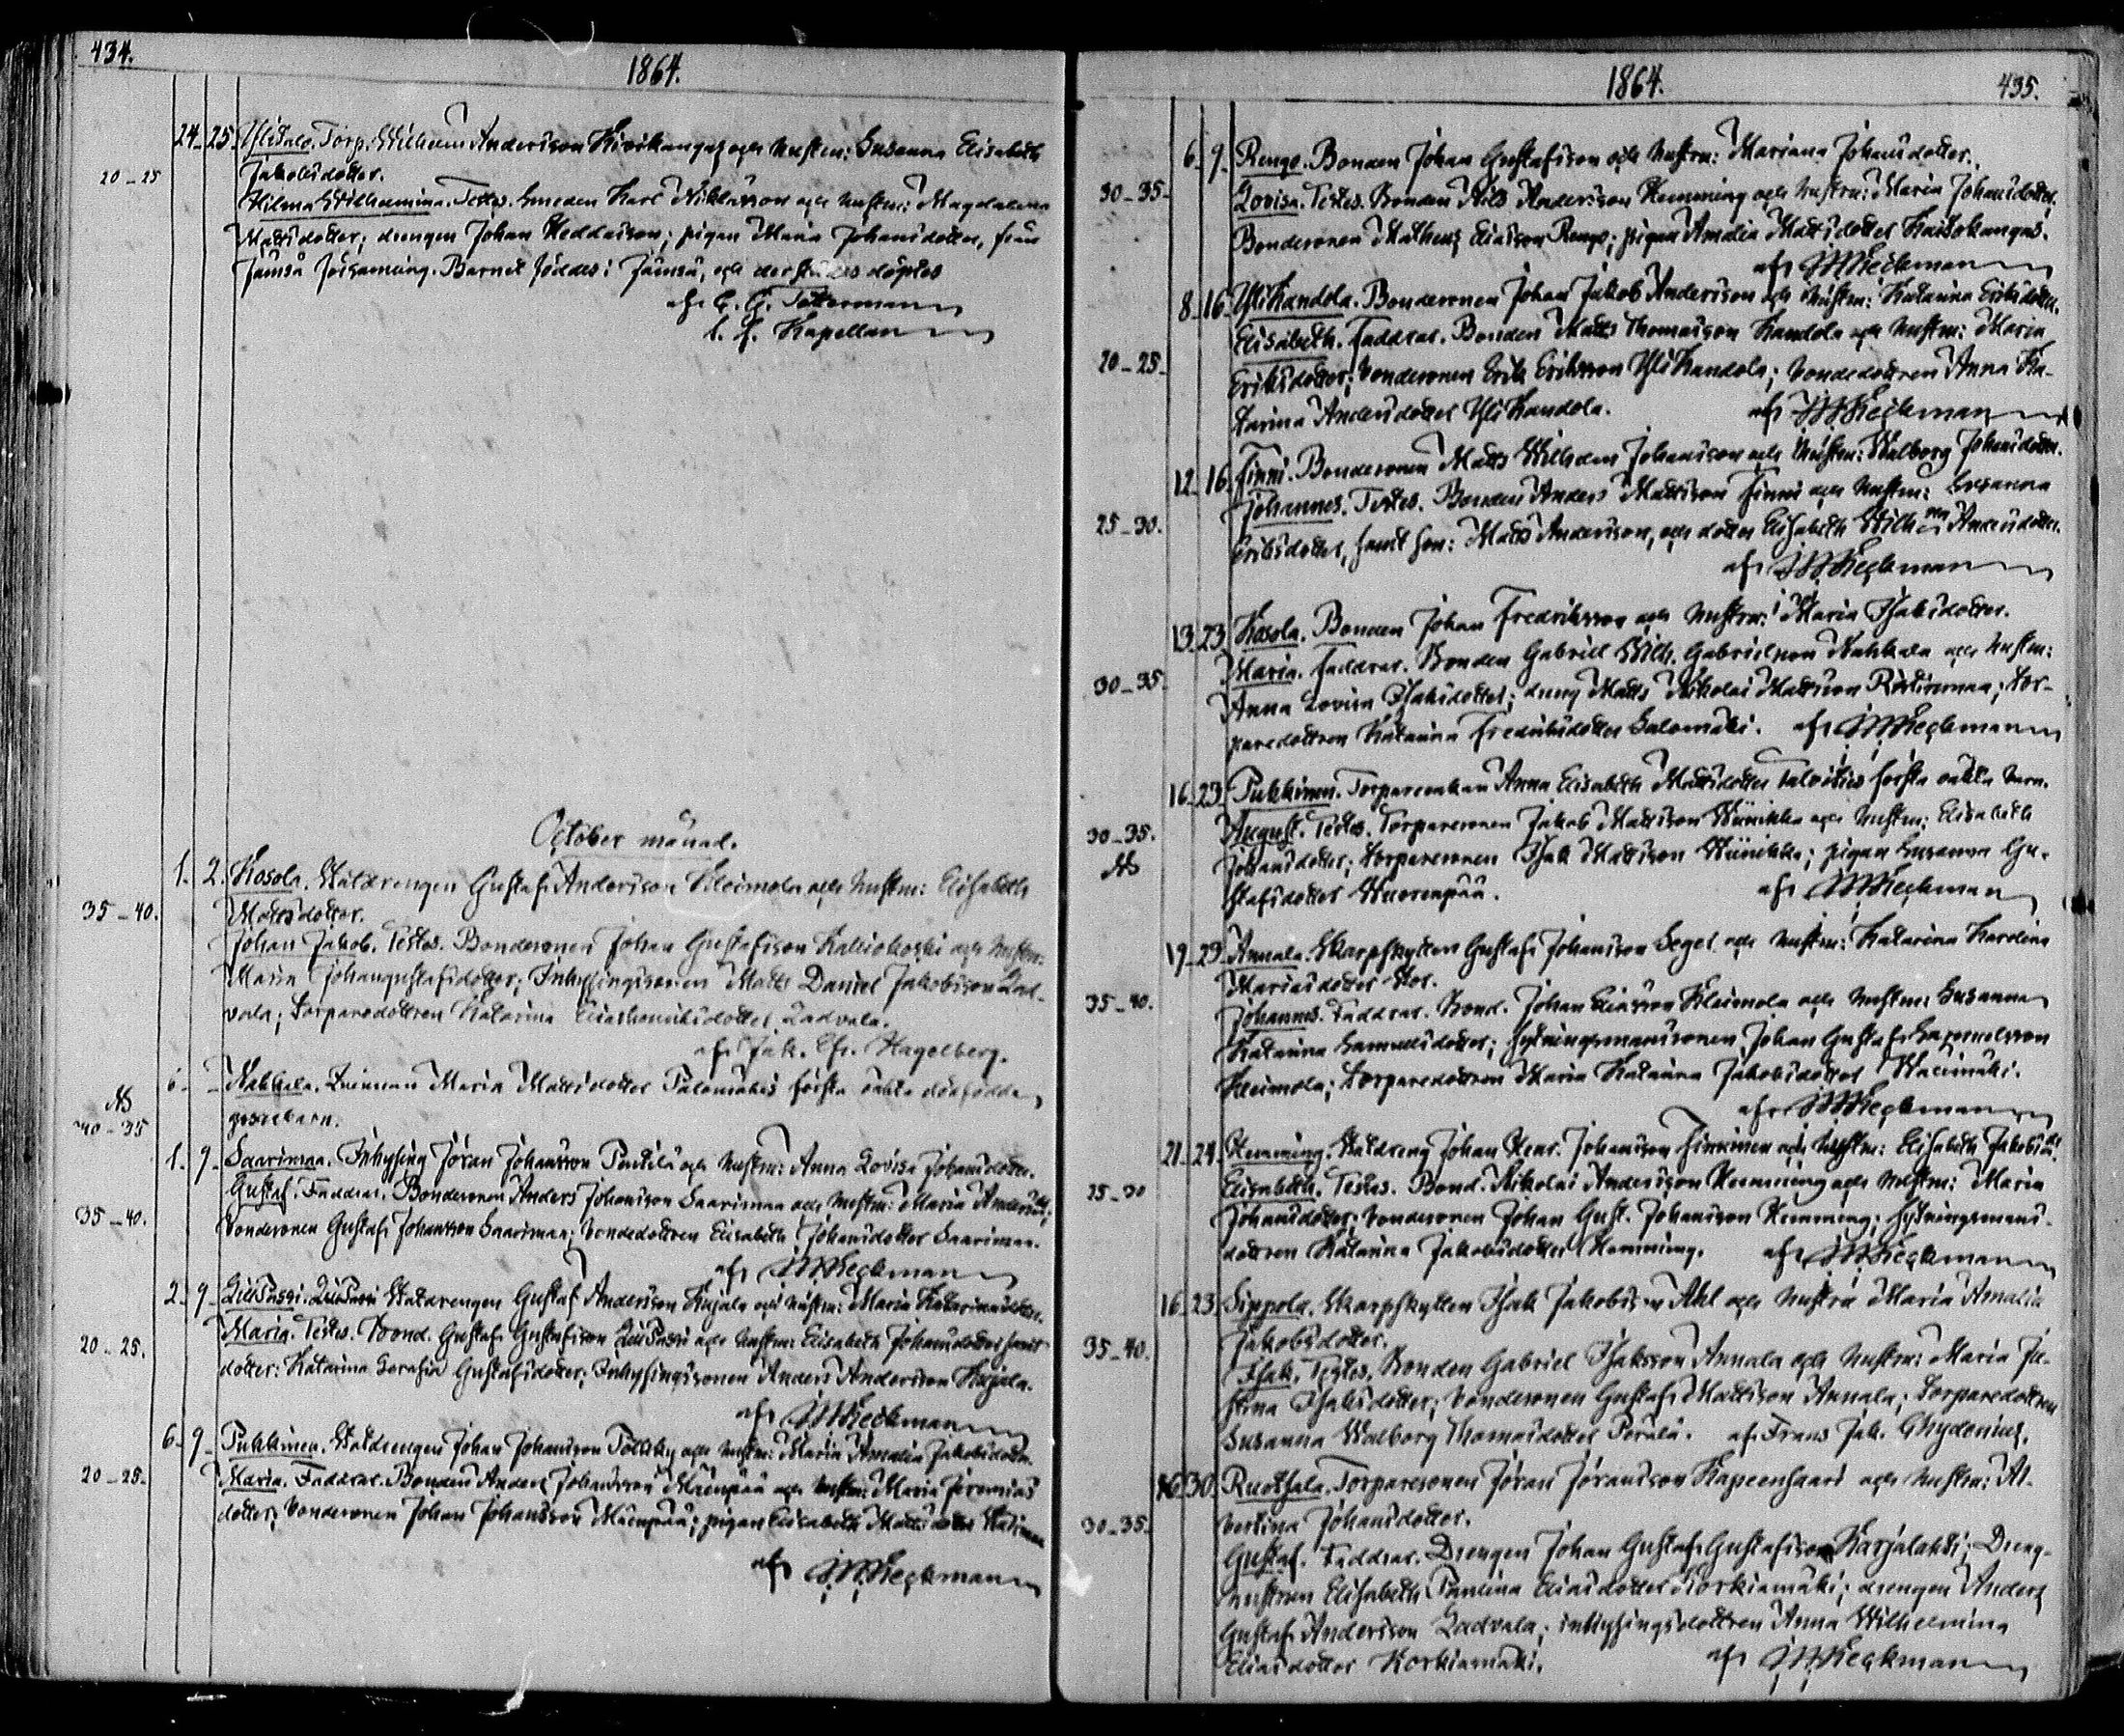 434.
1864.
24. 25. Ylisalo. Torp. Wilhelm Andersson Kivikangas och hustru: Susanna Elisabeth
20-25 Jakobsdotter.
Hilma Wilhelmina. Testes. Smeden Karl Niklasson och hustru: Magdalena
Mattsdotter; drengen Johan Heddasson; pigan Maria Johansdotter, från
Jämsä församling. Barnet föddes i Jämsä, och derstädes döptes
af C. G. Tötterman
t. f. Kapellan
October månad.
1. 2. Kosola. Statdrengen Gustaf Andersson Kleimola och hustru: Elisabeth
35-40. Mattsdotter.
Johan Jakob. Testes. Bondesonen Johan Gustafsson Kalliokoski och hustru:
Maria Johangustafsdotter; Inhysingssonen Matts Daniel Jakobsson Lad-
vala; Torparedottren Katarina Eliashenriksdotter Ladvala.
af Jak. Efr. Hagelberg.
6. Nahkala. Qvinnan Maria Mattsdotter Palomäkis första oäkta dödfödda
NB 40-35 gossebarn.
1. 9. Saarimaa. Inhysing Jöran Johansson Penttilä och hustru: Anna Lovisa Johansdotter.
Gustaf. Faddrar. Bondesonen Anders Johansson Saarimaa och hustru: Maria Andersdr;
35-40. bondesonen Gustaf Johansson Saarimaa; bondedottren Elisabeth Johansdotter Saarimaa.
af J. W. Keckman
2. 9. LillPassi. LillPassi Statdrengen Gustaf Andersson Kujala och hustru: Maria Katarina
20-25. Maria. Testes. Bond. Gustaf Gustafsson LillPassi och hustru: Elisabeth Johansdotter samt
dotter: Katarina Serafia Gustafsdotter; Inhysingssonen Anders Andersson Kujala.
af J. W. Keckman
6. 9. Puhkinen. Statdrengen Johan Johansson Pollky och hustru: Maria Amalia Jakobsdotter.
20-25. Maria. Faddrar. Bonden Anders Johansson Mäenpää och hustru: Maria Jeremias
dotter; bondesonen Johan Johansson Mäenpää; pigan Elisabeth Mattsdotter
af J. W. Keckman
1864. 435.
6. 9. Rengo. Bonden Johan Gustafsson och hustru: Mariana Johansdotter.
30-35. Lovisa. Testes. Bonden Nils Andersson Hemming och hustru: Maria Johansdotter;
Bondesonen Matheus Eliasson Rengo; pigan Amalia Mattsdotter Kaitokangas.
af J. W. Keckman
8. 16. YliKandola. Bondesonen Johan Jakob Andersson och hustru: Katarina Eriksdotter.
Elisabeth. Faddrar. Bonden Matts Thomasson Kandola och hustru: Maria
20-25. Eriksdotter; bondesonen Erik Eriksson YliKandola; bondedottren Anna Ka-
tarina Andersdotter YliKandola. af J. W. Keckman
12. 16. Finni. Bondesonen Matts Wilhelm Johansson och hustru: Walborg Johansdotter.
Johannes. Testes. Bonden Anders Mattsson Finni och hustru: Susanna
25-30. Eriksdotter, samt son: Matts Andersson, och dotter Elisabeth Wilhna Andersdotter.
af J. W. Keckman
13. 23. Kosola. Bonden Johan Fredriksson och hustru: Maria Isaksdotter.
Maria. Faddrar. Bonden Gabriel Wilh. Gabrielsson Nahkala och hustru:
30-35. Anna Lovisa Isaksdotter; dreng Matts Nikolai Mattsson Ristimaa; Tor-
paredottren Katarina Fredriksdotter Salomäki. af J. W. Keckman
16. 23. Puhkinen. Torparenkan Anna Elisabeth Mattsdotter Talvities första oäkta barn.
30-35. August. Testes. Torparesonen Jakob Mattsson Wiinikka och hustru: Elisabeth
NB Johansdotter; torparesonen Isak Mattsson Wiinikka; pigan Susanna Gu-
stafsdotter Wuorenpää. af J. W. Keckman
19. 23. Annala. Skarpskytten Gustaf Johansson Segel och hustru: Katarina Karolina
Mariasdotter Stor.
35-40. Johannes. Faddrar. Bond. Johan Eliasson Kleimola och hustru: Susanna
Katarina Samuelsdotter; sytningsmanssonen Johan Gustaf Samuelsson
Kleimola; torparedottren Maria Katarina Jakobsdotter
af J. W. Keckman
21. 24. Hemming. Statdreng Johan Henr. Johansson Finninen och hustru: Elisabeth Jakobsdr.
25-30 Elisabeth. Testes. Bond. Nikolai Andersson Hemming och hustru: Maria
Johansdotter; bondesonen Johan Gust. Johansson Hemming; sytningsmans-
dottren Katarina Jakobsdotter Hemming. af J. W. Keckman
16. 23. Sippola. Skarpskytten Isak Jakobsson Ahl och hustru Maria Amalia
35-40. Jakobsdotter.
Isak. Testes. Bonden Gabriel Isaksson Annala och hustru: Maria Ju-
stina Isaksdotter; bondesonen Gustaf Mattsson Annala; torparedottren
Susanna Walborg Thomasdotter Perälä. af Frans Jak. Chydenius.
16. 30. Ruotsala. Torparesonen Jöran Jöransson Kapeensaari och hustru: Al-
30-35. bertina Johansdotter.
Gustaf. Faddrar. Drengen Johan Gustaf Gustafsson Karjalahti; Dreng-
hustrun Elisabeth Paulina Eliasdotter Korkiamäki; drengen Anders
Gustaf Andersson Ladvala; inhysingsdottren Anna Wilhelmina
Eliasdotter Korkiamäki. af J. W. Keckman